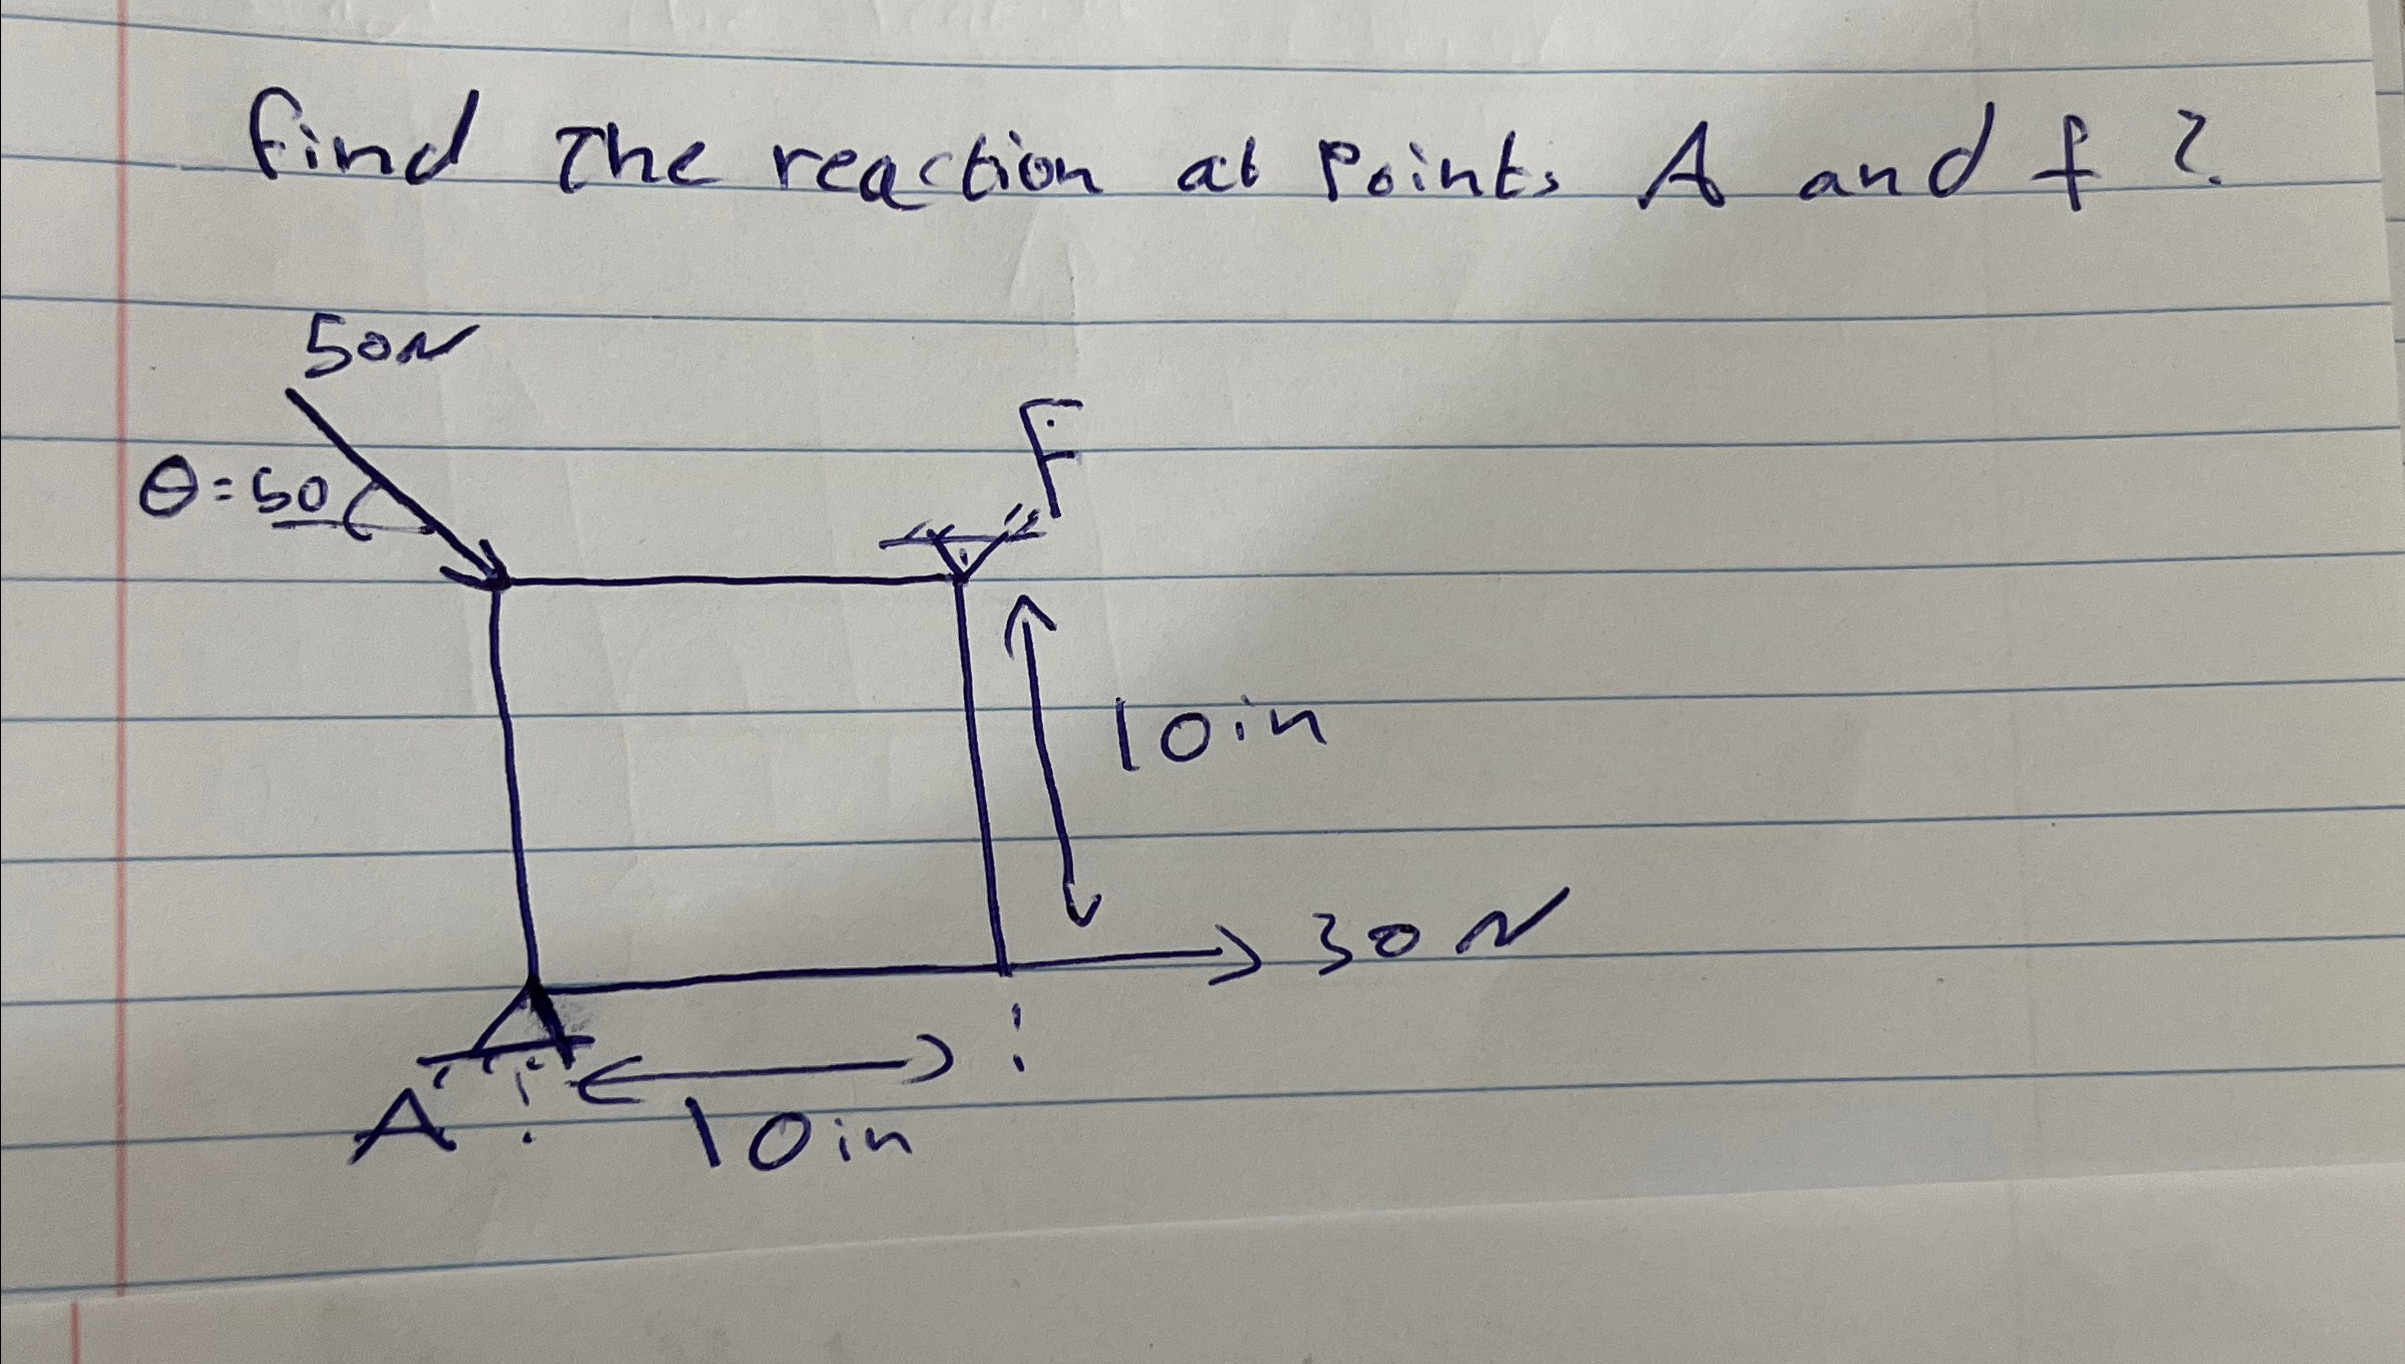 find The reaction at Points A and f ?
50N
F
θ=50
10in
30N
A
10in